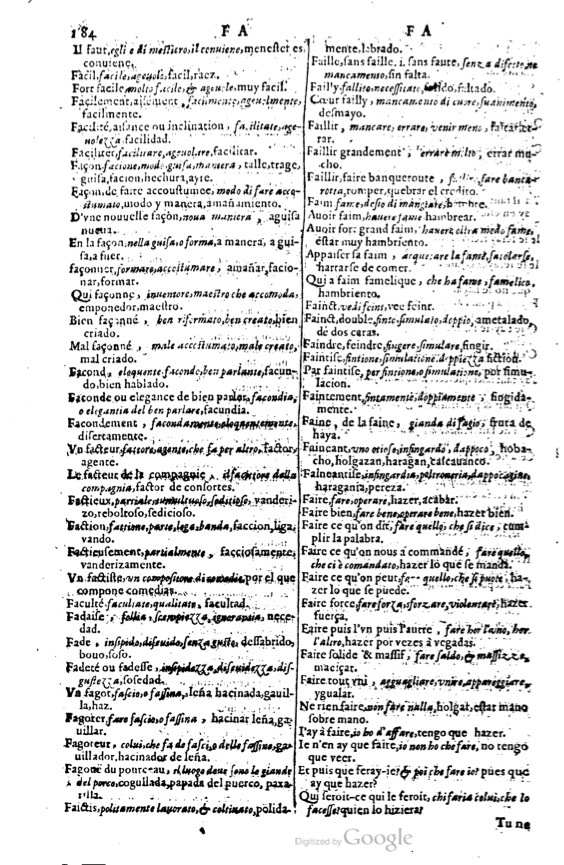 184 F A F A
Il faut, egli e di mestiero, il conuiene, menester es,
conuiene.
Facil, facile, ageuole, facil, raez.
Fort facile, molto facile, & ageuole, muy facil.
Facilement, aisement, facilmente, ageuolmente,
facilmente.
Facilité, aisance ou inclination, facilitate, age-
uolezza, facilidad.
Faciliter, facilitare, ageuolare, facilitar.
Façon, facione, modo, guisa, maniera, talle, trage,
guisa, facion, hechura, ayre.
Façon, de faire accoustumee, modo di fare acco-
stumato, modo y manera, amañamiento.
D'vne nouuelle façon, noua maniera, aguisa
nueua.
En la façon, nella guisa, o forma, a manera, a gui-
sa, a fuer.
façonner, formare, accostumare, amañar, facio-
nar, formar.
Qui façonne, inuentore, maestro che accomoda,
emponedor, maestro.
Bien façonné, ben riformato, ben creato, bien
criado.
Mal façonné, male accostumato, mal creato,
mal criado.
Facond, eloquente, facondo, ben parlante, facun-
do, bien hablado.
Faconde ou elegance de bien parler, facondia,
o elegantia del ben parlare, facundia.
Facondement, facondamente, eloquentemente,
disertamente.
Vn facteur, fattore, agente, che fa per altro, factor,
agente.
Le facteur de la compagnie, il fattore della
compagnia, factor de consortes.
Factieux, partiale, tumultuoso, seditioso, vanderi-
zo, reboltoso, sedicioso.
Faction, fattione, parte, lega, banda, faccion, liga,
vando.
Factieusement, partialmente, facciosamente,
vanderizamente.
Vn factiste, vn compositore di comedie, por el que
compone comedias.
Faculté, facultate, qualitate, facultad.
Fadaise, follia, scempiezza, ignoranza, nece-
dad.
Fade, insipido, disauido, senza gusto, dessabrido,
bouo, soso.
Fadeté ou fadesse, insipidezza, disuidezza, dis-
gustezza, sosedad.
Vn fagot, fascio, o fassina, leña hacinada, gauil-
la, haz.
Fagoter, fare fascio, o fassina, hacinar leña, ga-
uillar.
Fagoteur, colui, che fa de fasci, o delle fassine, ga-
uillador, hacinador de leña.
Fagoüe du pourceau, il luogo doue sono le giande
del porco, cogullada, papada del puerco, paxa-
rilla.
Faictis, politamente lauorato, & coltiuato, polida-
mente, labrado.
Faille, sans faille. i. sans faute, senza difetto, ne
mancamento, sin falta.
Failly, fallito, necessitate, falido, faltado.
Cœur failly, mancamento di cuore, suanimento,
desmayo.
Faillir, mancare, errare, venir meno, faltar, er-
rar.
Faillir grandement, errare molto, errar mu-
cho.
Faillir, faire banqueroute, fare banca-
rotta, romper, quebrar el credito.
Faim, fame, desio di mangiare, hambre.
Auoir faim, hauere fame, hambrear.
Auoir fort grand faim, hauere oltra modo fame,
estar muy hambriento.
Appaiser sa faim, acquetare la fame, satolarse,
hartarse de comer.
Qui a faim, famelique, che ha fame, famelico,
hambriento.
Fainct, vedi feint, vee feinr.
Fainct, double, finto, simulato, doppio, ametalado,
de dos caras.
Faindre, feindre, fingere, simulare, fingir.
Faintise, fintione, simulatione, doppiezza, ficcion.
Par faintise, per fintione, o simulatione, por simu-
lacion.
Faintement, fintamente, doppiamente, fingida-
mente.
Faine, de la faine, gianda di fagio, fruta de
haya.
Faineant, vno otioso, infingardo, dappoco, hoba-
cho, holgazan, haragan, cascauanco.
Faineantise, infingardia, poltroneria, dappocagine,
haragania, pereza.
Faire, fare, operare, hazer, acabar.
Faire bien, fare bene, operare bene, hazer bien.
Faire ce qu'on dit, fare quello, che si dice, cum-
plir la palabra.
Faire ce qu'on nous a commandé, fare quello,
che ci è comandato, hazer lo que se manda.
Faire ce qu'on peut, fare quello, che si puote, ha-
zer lo que se puede.
Faire force, fare forza, sforzare, violentare, hazer
fuerça,
Faire puis l'vn puis l'autre, fare hor l'vno, hor
l'altro, hazer por vezes à vegadas.
Faire solide & massif, fare saldo, & massizza,
maciçar.
Faire tout vni, agguagliare, vnire, appareggiare,
ygualar.
Ne rien faire, non fare nulla, holgar, estar mano
sobre mano.
I'ay à faire, io ho d'affare, tengo que hazer.
Ie n'en ay que faire, io non ho che fare, no tengo
que veer.
Et puis que feray-ie? & poi che fare io? pues que
ay que hazer?
Qui feroit-ce qui le feroit, chi saria colui, che lo
facesse? quien lo hiziera?
Tu ne
Digitized by Google